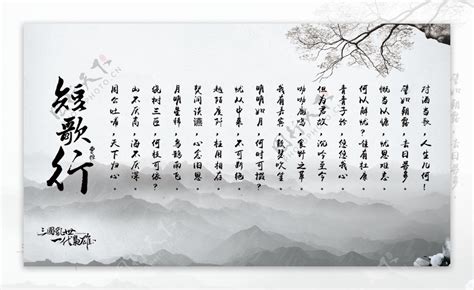 短歌行
曹操
对酒当歌,人生几何!
譬如朝露,去日苦多。
慨当以慷,忧思难忘。
何以解忧?唯有杜康。
青青子衿,悠悠我心。
但为君故,沉吟至今。
呦呦鹿鸣,食野之苹。
我有嘉宾,鼓瑟吹笙。
明明如月,何时可掇?
忧从中来,不可断绝。
越陌度阡,枉用相存。
契阔谈讌,心念旧恩。
月明星稀,乌鹊南飞。
绕树三匝,何枝可依?
山不厌高,海不厌深。
周公吐哺,天下归心。
三國亂世
一代梟雄